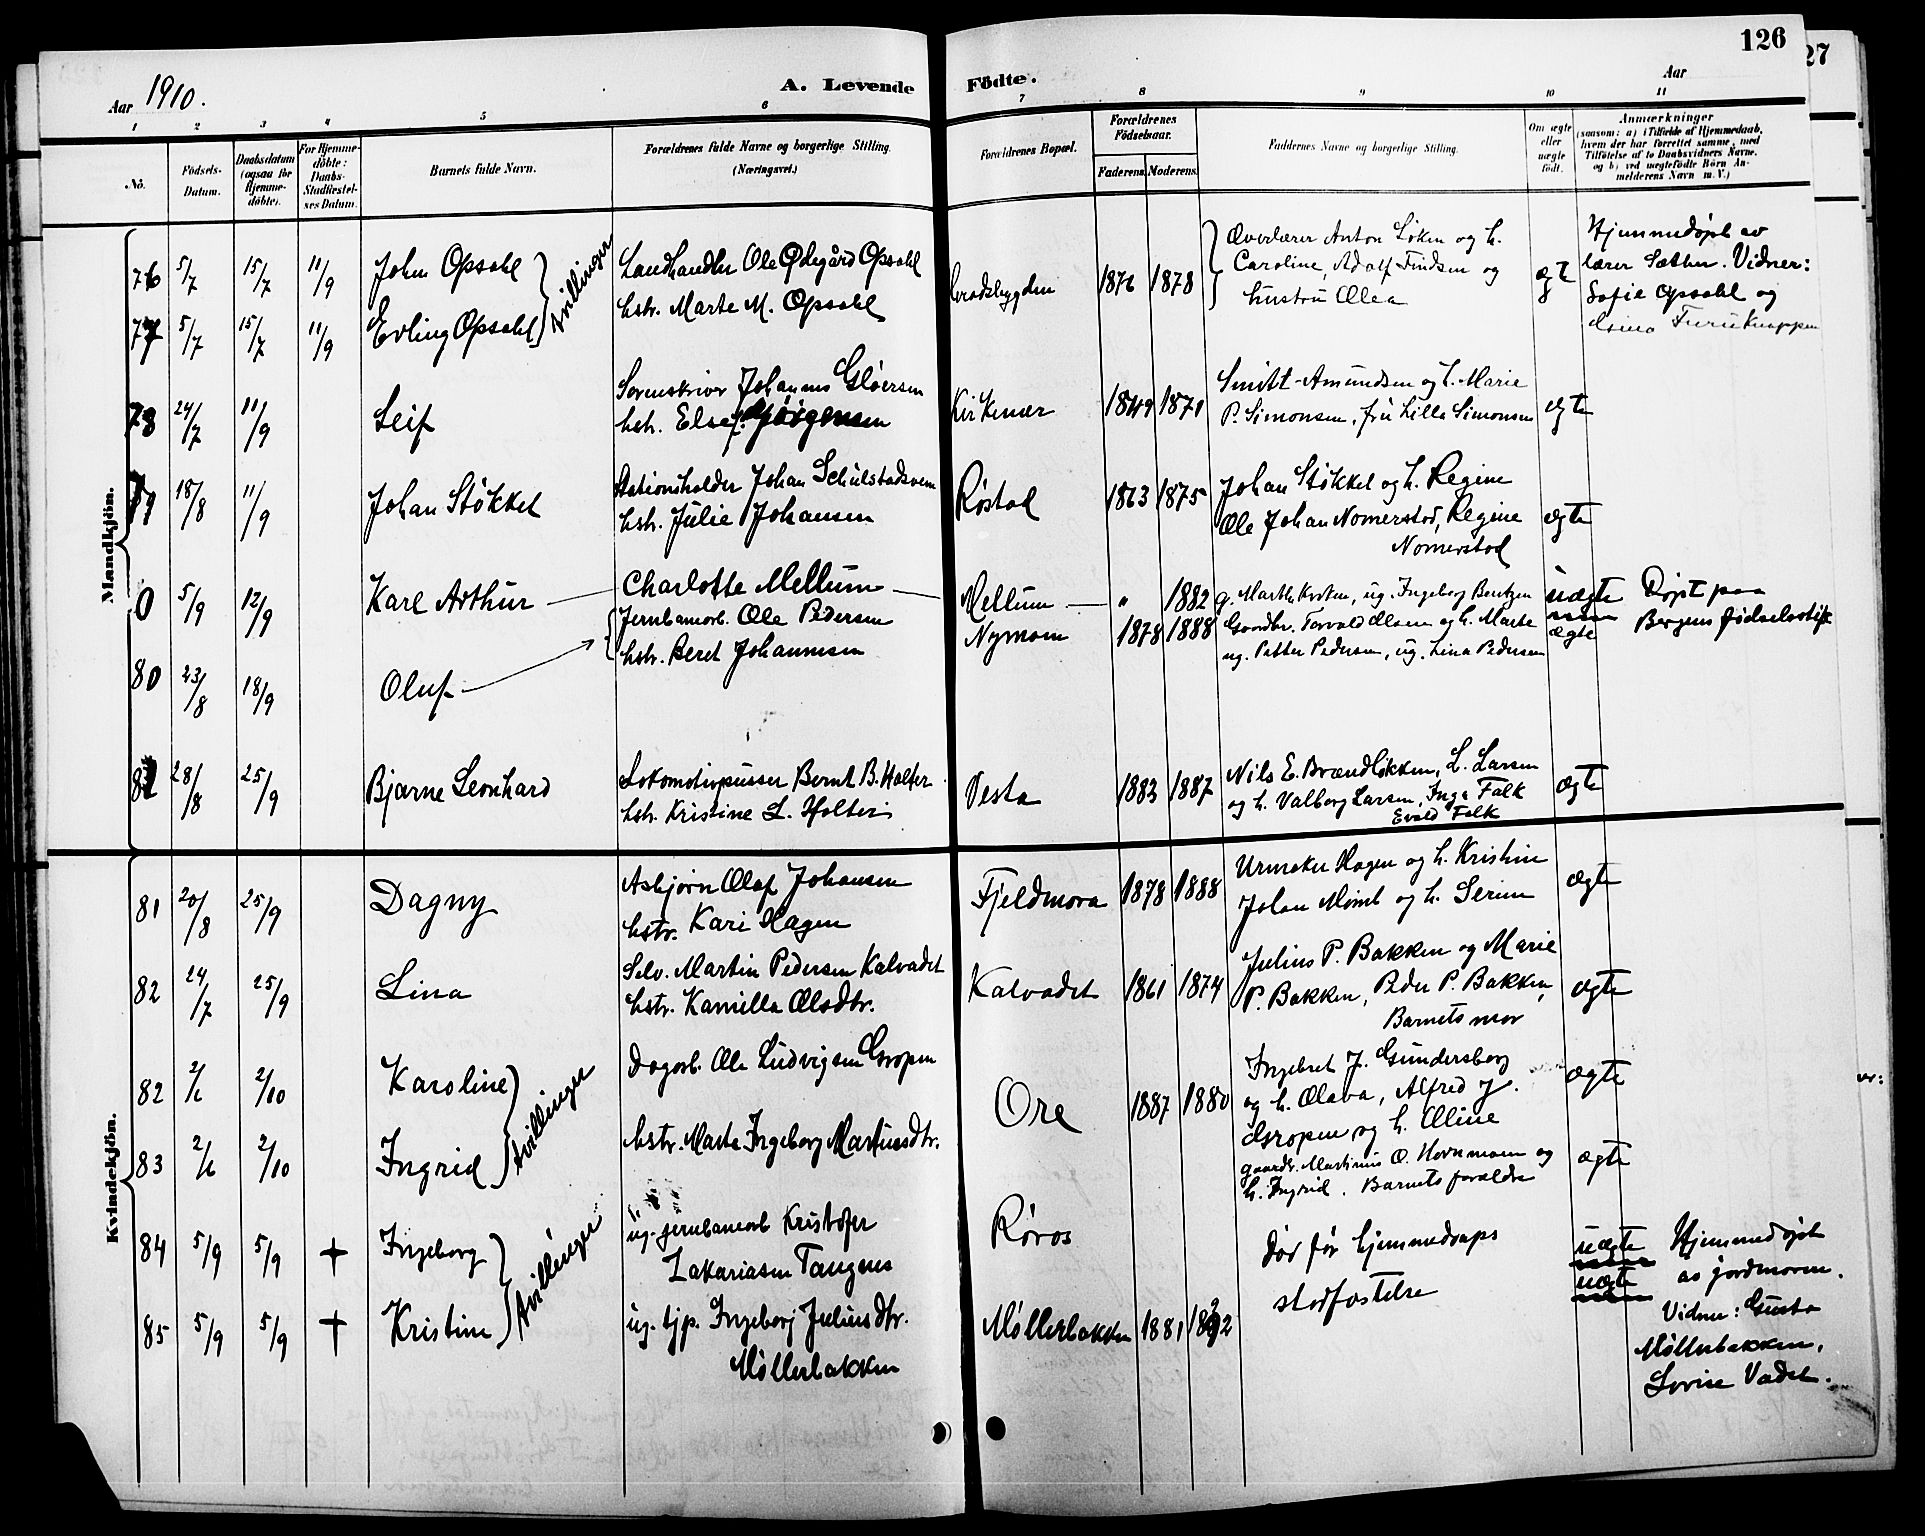 126
27
Aar 1910.
A. Levende Födte.
Aar
1 2 3 4 5 6 7 8 9 10 11
No.
Födsels-
Datum.
Daabsdatum
(ogsaa for
Hjemme-
döbte).
For Hjemme-
döbte:
Daabs-
Stadfæstel-
ses Datum.
Barnets fulde Navn.
Forældrenes fulde Navne og borgerlige Stilling.
(Næringsvei.)
Forældrenes Bopæl.
Forældrenes
Födselsaar.
Faderens. Moderens.
Faddernes Navne og borgerlige Stilling.
Om ægte
eller
uægte
födt.
Anmærkninger
(saasom: a) i Tilfælde af Hjemmedaab,
hvem der har forrettet samme, med
Tilföielse af to Daabsvidners Navne,
og b) ved uegtefödte Börn An-
melderens Navn m. V.)
Mandkjön.
76 5/7 15/7 11/9 John Opsahl
Landhandler Ole Ødegård Opsahl
hstr. Marte M. Opsahl
1876 1878
Overlærer Anton Løken og h.
Caroline, Adolf Findsen og
hustru Olea
ægt
Hjemmedøpt av
lærer Sæther. Vidner:
Sofie Opsahl og
Furuknappen
77 5/7 15/7 11/9 Erling Opsahl
tvillinger
78 24/7 11/9 Leif
Sorenskriver Johannes Gløersen
hstr. Else f. Jörgensen
Kirkenær 1849 1871
Smitt-Amundsen og h. Marie
P. Simonsen, fru Lilla Simonsen
ægte
79 18/8 11/9 Johan Støkket
Stationsholder Johan Schulstadsveen
hstr. Julie Johansen
Røstad 1863 1875
Johan Støkket og h. Regine
Ole Johan Nomerstad, Regine
Nomerstad
ægte
0 5/9 12/9 Karl Arthur
Charlotte Mellum
Mellum " 1882
g. Marthe Kvsten, ug. Ingeborg Bentzen
uægte
Døpt paa
Bergens fødselsstift
Jernbanearb. Ole Pedersen
hstr. Beret Johannesen
Nymoen 1878 1888
Gaardbr. Torvald Olsen og h. Marte
ug. Petter Pedersen, ug. Lina Pedersen
ægte
80 23/8 18/9 Oluf
81 28/8 25/9 Bjarne Leonhard
Lokomotivpusser Bernt B. Holter
hstr. Kristine L. Holter
Vesta 1883 1887
Nils E. Brændløkken, L. Larsen
og h. Valborg Larsen, Inga Falk
Evald Falk
ægte
Kvindekjön.
81 20/8 25/9 Dagny
Asbjørn Olaf Johansen
hstr. Kari Hagen
Fjeldmora 1878 1888
Urmaker Hagen og h. Kristine
Johan Momb og h. Serine
ægte
82 24/7 25/9 Lina
Selv. Martin Pedersen Kalvadet
hstr. Kamilla Olsdtr.
Kalvadet 1861 1874
Julius P. Bakken og Marie
P. Bakken, Peder P. Bakken,
Barnets mor
ægte
82 2/6 2/10 Karoline
Dagarb. Ole Ludvigsen Gropen
hstr. Marte Ingeborg Martinusdtr.
Ore 1887 1880
Ingebret J. Gundersborg
og h. Olava, Alfred J.
Gropen og h. Oline
ægte
83 2/6 2/10 Ingrid
tvillinger
gaardbr. Martinus O. Hornmoen og
h. Ingrid. Barnets forældre
ægte
84 5/9 5/9 † Ingeborg
ug. jernbanearb Kristofer
Zakariasen Tangnes
Røros
død før hjemmedaaps
stadfæstelse
uægte
uægte
Hjemmedøpt
av jordmoren.
Vidner: Gusta
Møllerbakken,
Lovise Vadet.
85 5/9 5/9 † Kristine
tvillinger
ug. tjp. Ingeborg Juliusdtr.
Møllerbakken
Møllerbakken 1881 1892